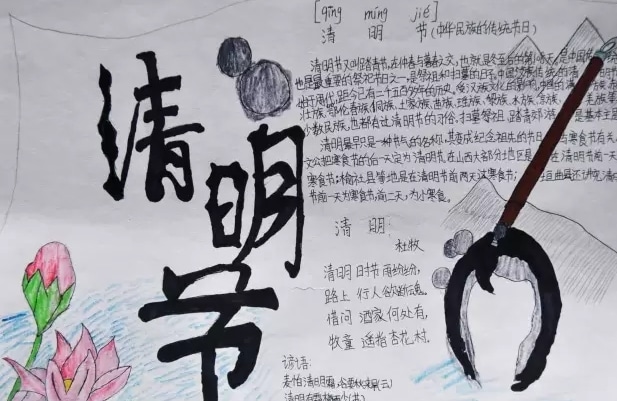 清明节
[qīng míng jié]
清 明 节(中华民族的传统节日)
清明节又叫踏青节,在仲春与暮春之交,也就是冬至后的第 天,是中国
也是最重要的祭祀节日之一,是祭祖和扫墓的日子。中国 传统的清 节
始于周代,距今已有二千五百多年的历史,受汉族文化的影响,中国的满 族
壮族,鄂伦春族,侗族,土家族,苗族,瑶族,黎族,水族,京族, 羌族等
少数民族,也都有过清明节的习俗,扫墓祭祖,踏青郊 是基本主
清明最早只是一种节气的名称,其变成纪念祖先的节日 与寒食节有关
文公把寒食节的后一天定为清明节,在山西大部分地区是 在清明节前一天
寒食节;榆社县等地是在清明节前两天过寒食节; 垣曲县还讲究清
节前一天为寒食节,前二天,为小寒食。
清 明:
杜牧
清明时节雨纷纷,
路上行人欲断魂。
借问酒家何处有,
牧童遥指杏花村。
谚语:
麦怕清明霜,谷要秋来旱(云)
清明有霜梅雨少(苏)